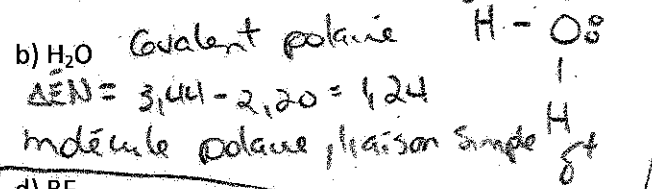 b) H₂O Covalent polaire H - O
ΔEN = 3,44 - 2,20 = 1,24
molécule polaire, liaison simple H
δ+